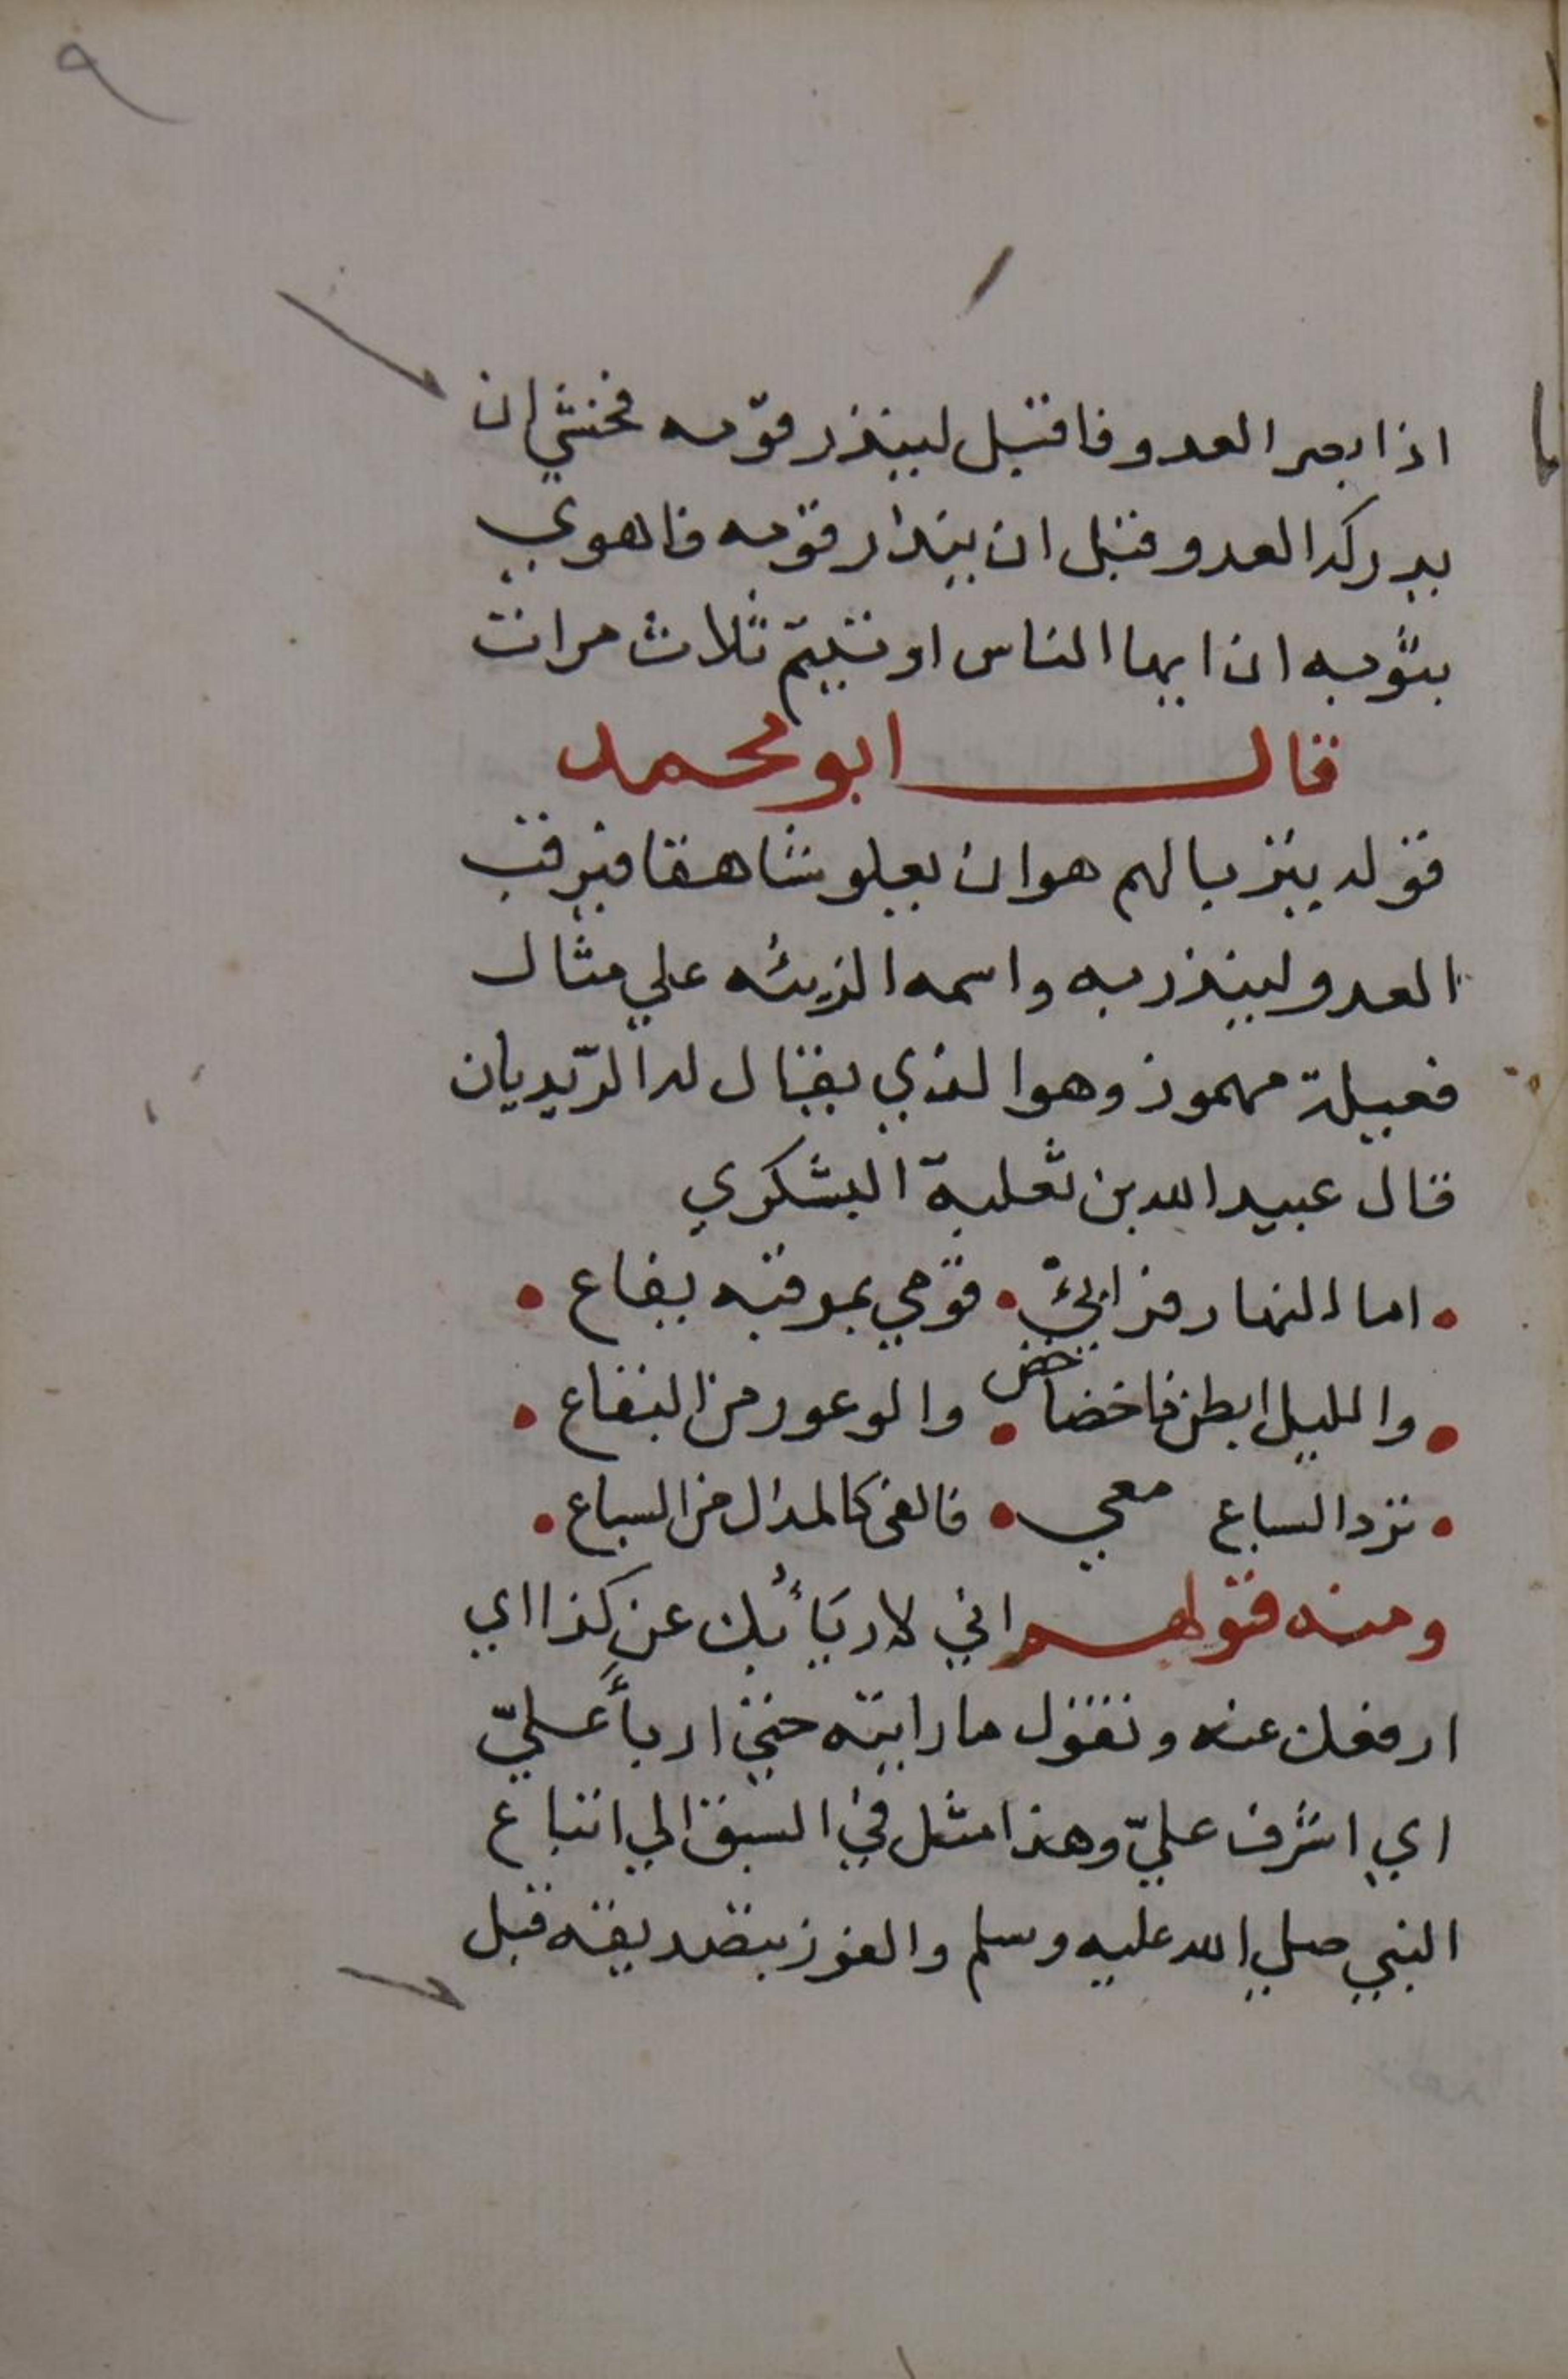 ٩
اذا ابصر العدو فاقبل لينذر قومه فخشي ان
يدركه العدو قبل ان ينذر قومه فاهوي
بثوبه ان ايها الناس اوتيتم ثلاث مرات
قال ابو محمد
قوله يتربا لهم هو ان يعلو شاهقا فيرقب
العدو لينذر به واسمه الربيئه علي مثال
فعيلة مهموز وهو الذي يقال له الديديان
قال عبيد الله بن ثعلبة اليشكري
اما النهار فرابئ • قومي بمرقبه يفاع •
والليل ابطن خاخضاخض • والوعور من البقاع •
ترد السباع معي • فالفى كالمدل من السباع •
ومنه قولهم اني لاربَأُ بك عن كذا اي
ارفعك عنه وتقول ما رايته حتي اربأَ عليّ
اي اشرف عليّ وهذا مثل في السبق الي اتباع
النبي صلي الله عليه وسلم والفوز بتصديقه قبل